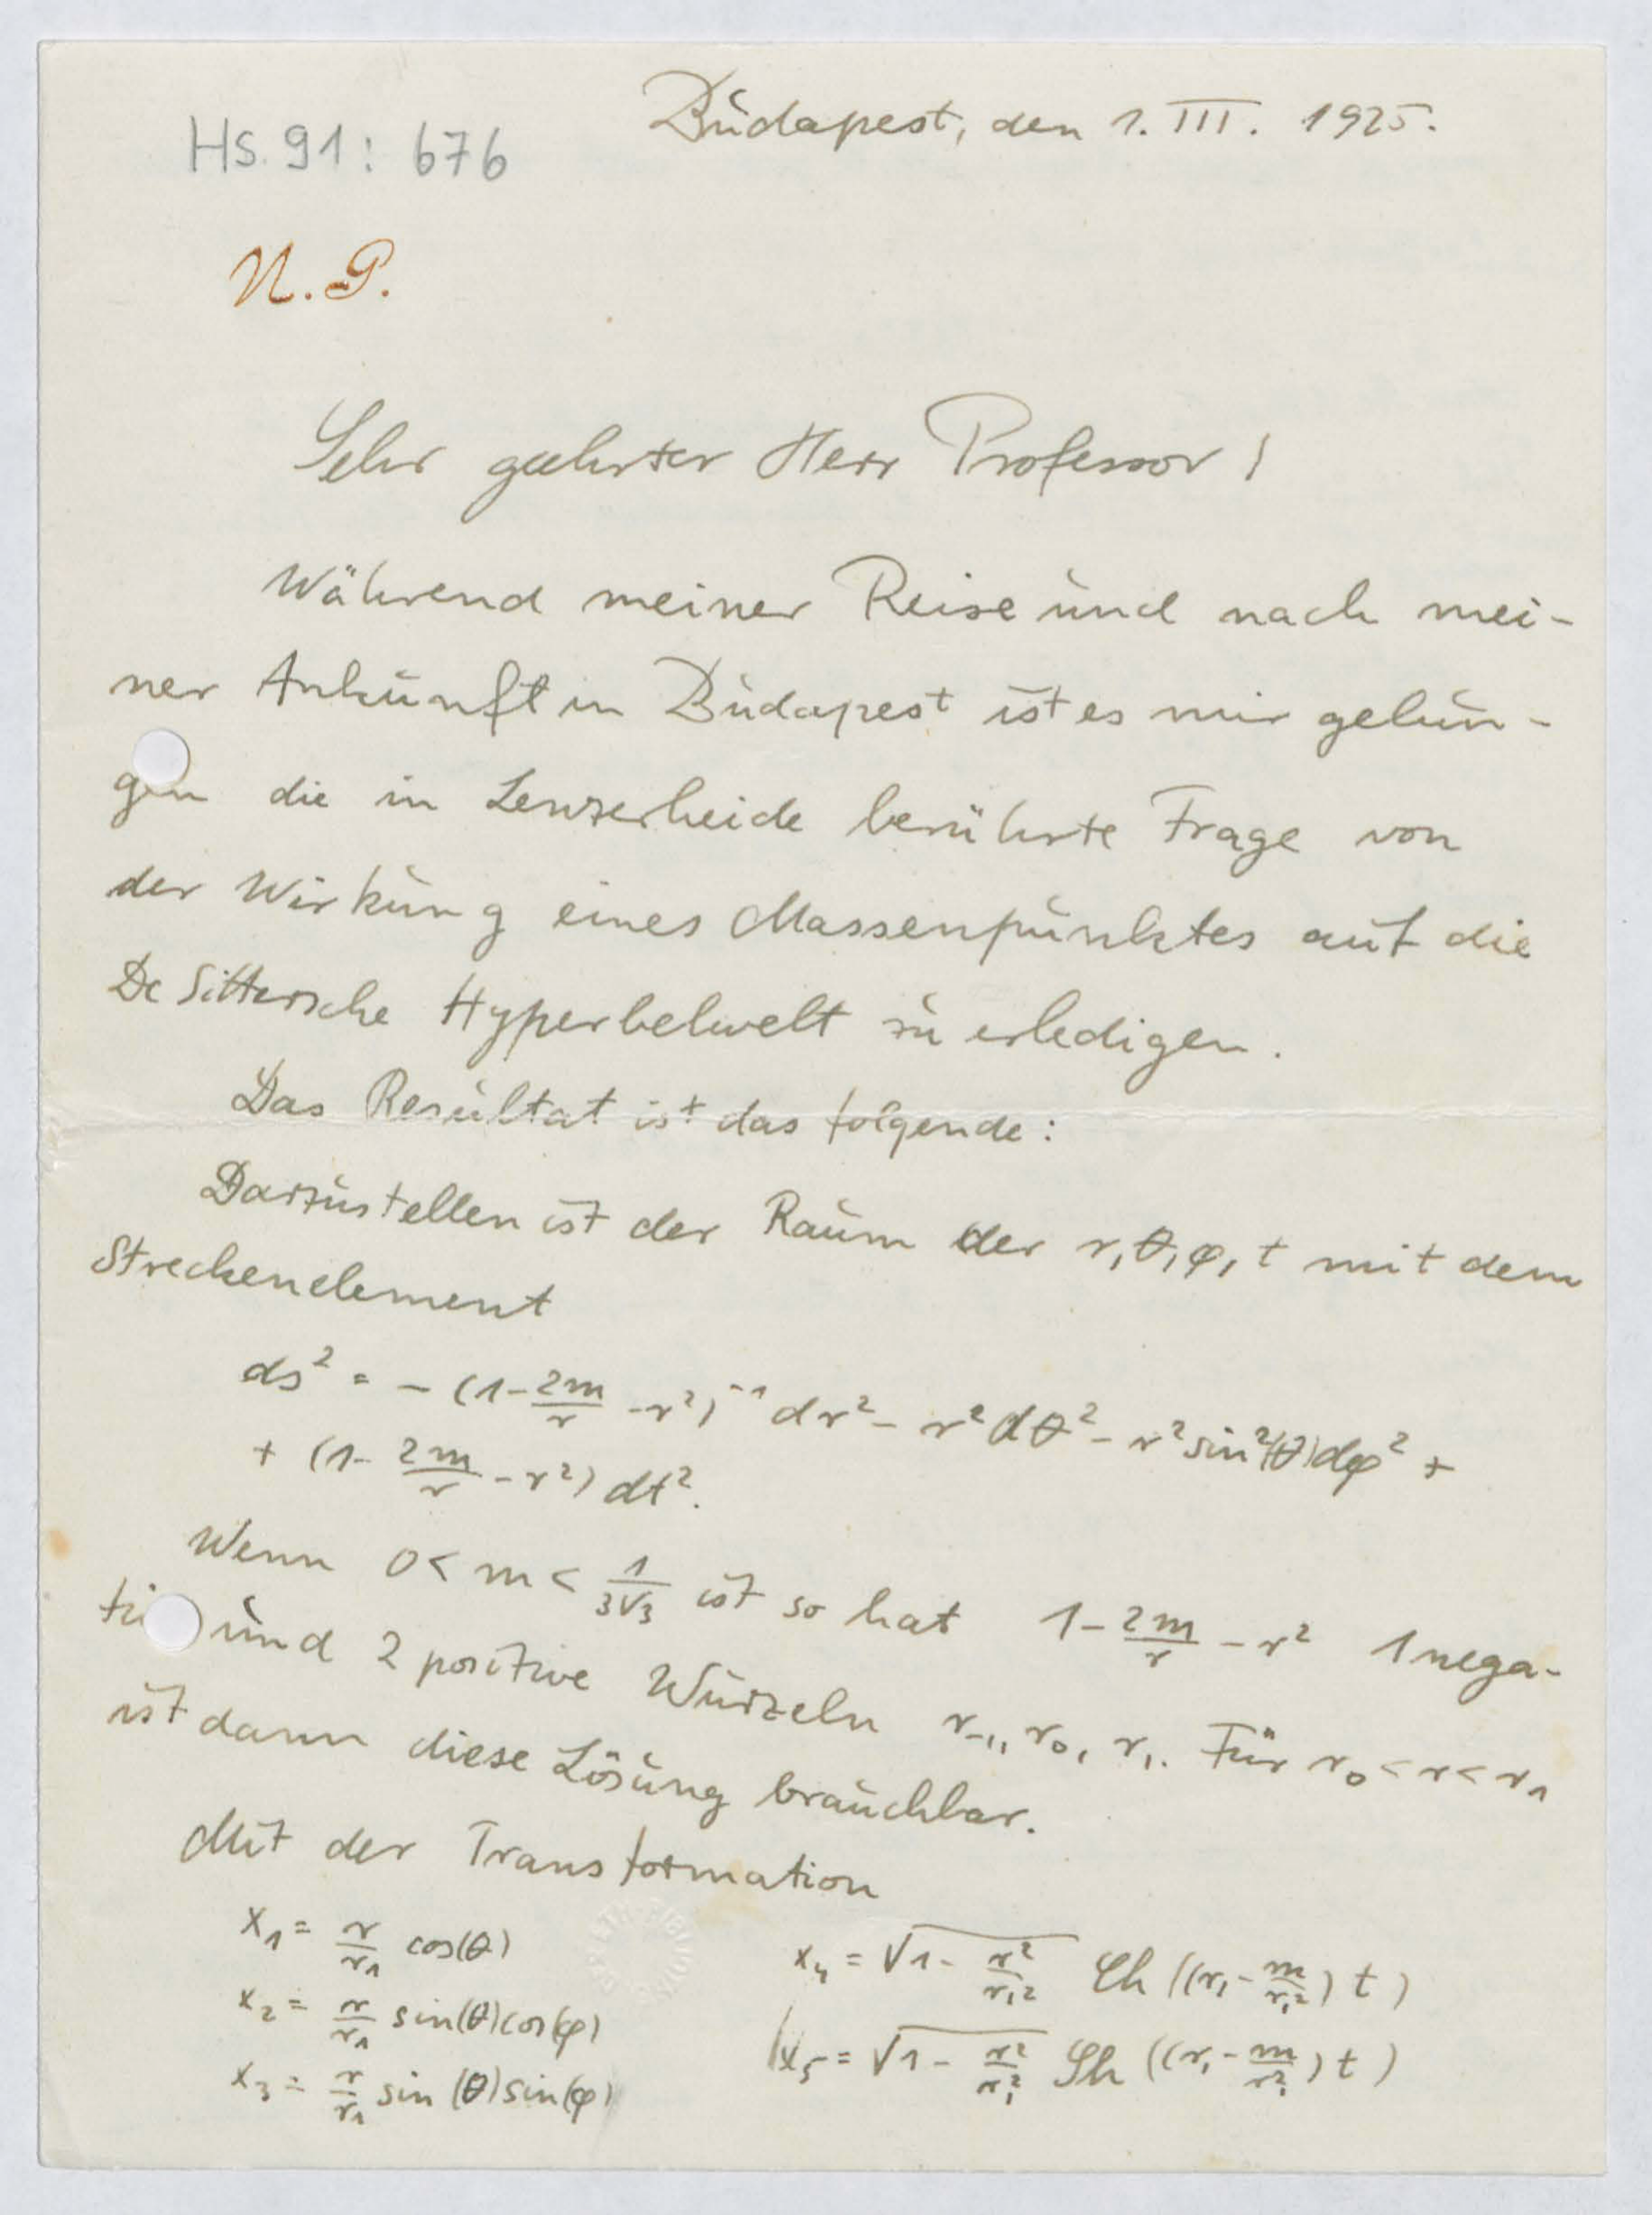 Budapest, den 1. III. 1925.
Hs. 91: 676
N. P.
Sehr geehrter Herr Professor!
Während meiner Reise und nach mei-
ner Ankunft in Budapest ist es mir gelun-
gen die in Lenzerheide berührte Frage von
der Wirkung eines Massenpunktes auf die
De Sittersche Hyperbelwelt zu erledigen.
Das Resultat ist das folgende:
Darzustellen ist der Raum der r, θ, φ, t mit dem
Streckenelement
ds² = - (1 - 2m/r - r²)⁻¹ dr² - r² dθ² - r² sin²(θ) dφ² +
+ (1 - 2m/r - r²) dt².
Wenn 0 < m < 1/3√3 ist so hat 1 - 2m/r - r² 1 nega-
ti und 2 positive Wurzeln r₋₁, r₀, r₁. Für r₀ < r < r₁
ist dann diese Lösung brauchbar.
Mit der Transformation
x₁ = r/r₁ cos(θ)
x₂ = r/r₁ sin(θ) cos(φ)
x₃ = r/r₁ sin(θ) sin(φ)
x₄ = √1 - r²/r₁² Ch ((r₁ - m/r₁²) t)
x₅ = √1 - r²/r₁² Sh ((r₁ - m/r₁²) t)